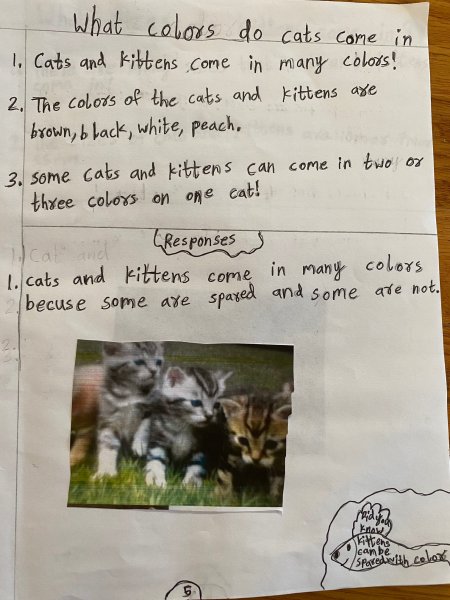 What colors do cats come in
1. Cats and kittens come in many colors!
2. The colors of the cats and kittens are
brown, black, white, peach.
3. some cats and kittens can come in two or
three colors on one cat!
Responses
1. cats and kittens come in many colors
becuse some are spared and some are not.
Did you
know
kittens
can be
spared with color
5